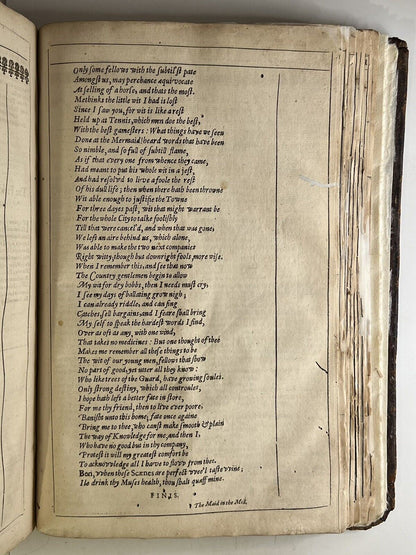 Only some fellows with the subtil'st pate
Amongst us, may perchance equivocate
At selling of a horse, and thats the most.
Methinks the little wit I had is lost
Since I saw you, for wit is like a rest
Held up at Tennis, which men doe the best,
With the best gamesters: What things have we seen
Done at the Mermaid! heard words that have been
So nimble, and so full of subtill flame,
As if that every one from whence they came,
Had meant to put his whole wit in a jest,
And had resolv'd to live a foole the rest
Of his dull life; then when there hath been throwne
Wit able enough to justifie the Towne
For three dayes past, wit that might warrant be
For the whole City to talke foolishly
Till that were cancel'd, and when that was gone;
We left an aire behind us, which alone,
Was able to make the two next companies
Right witty, though but downright fools, more wise.
When I remember this, and see that now
The Country gentlemen begin to allow
My wit for dry bobbs, then I needs must cry,
I see my days of ballating grow nigh;
I can already riddle, and can sing
Catches, sell bargains, and I feare shall bring
My self to speak the hardest words I find,
Over as oft as any, with one wind,
That takes no medicines: But one thought of thee
Makes me remember all these things to be
The wit of our young men, fellows that show
No part of good, yet utter all they know:
Who like trees of the Guard, have growing soules.
Only strong destiny, which all controules,
I hope hath left a better fate in store,
For me thy friend, then to live ever poore.
Banisht unto this home, fate once againe
Bring me to thee, who canst make smooth & plain
The way of Knowledge for me, and then I,
Who have no good but in thy company,
Protest it will my greatest comfort be
To acknowledge all I have to flow from thee.
Ben, when these Scenes are perfect wee'l taste wine;
Ile drink thy Muses health, thou shalt quaff mine.
FINIS.
The Maid in the Mill,